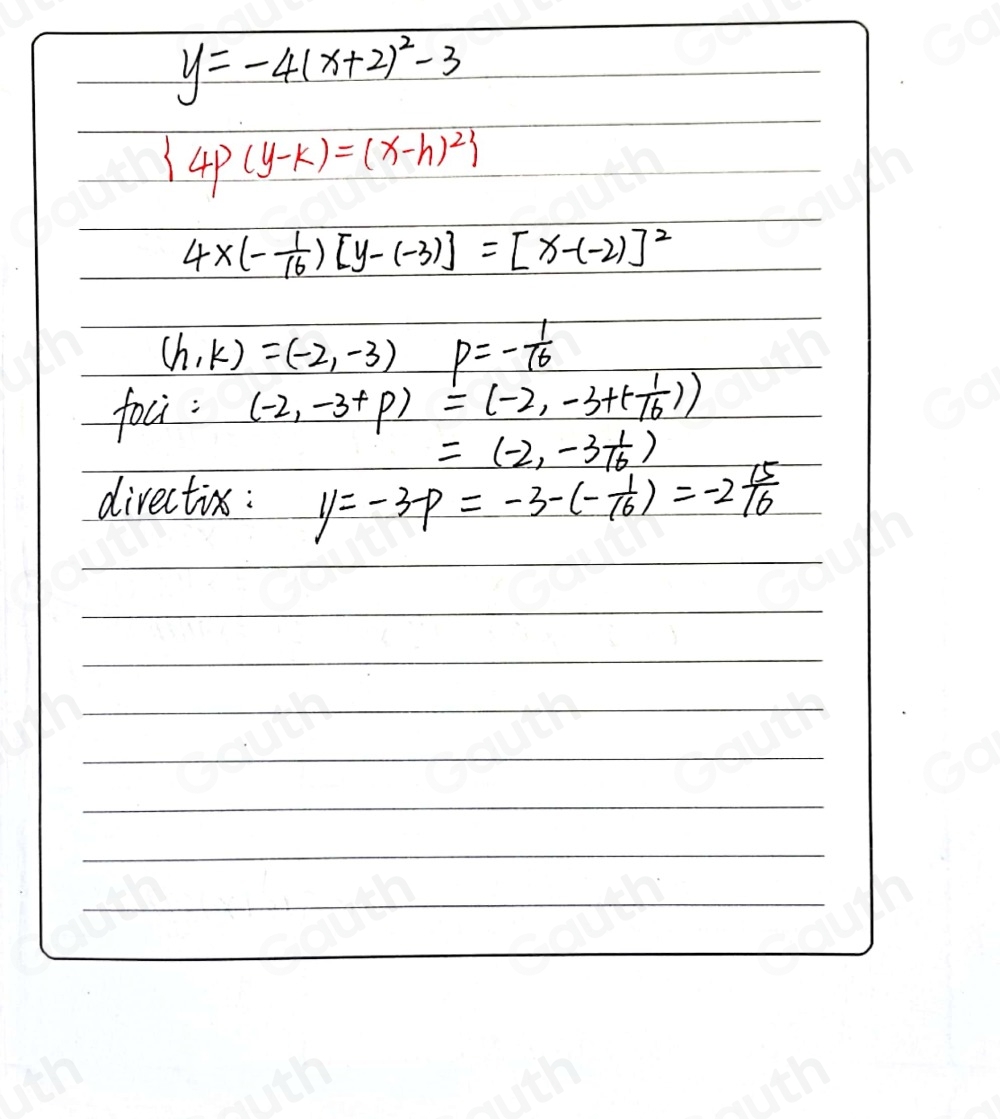 y = -4(x+2)² - 3
{4p(y-k) = (x-h)²}
4×(-1/16)[y-(-3)] = [x-(-2)]²
(h,k) = (-2,-3) p = -1/16
foci: (-2, -3+p) = (-2, -3+(-1/16))
= (-2, -3 1/16)
directix: y = -3-p = -3-(-1/16) = -2 15/16